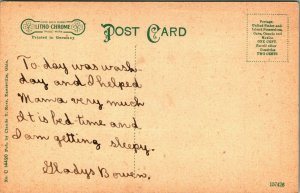 LITHO-CHROME
Printed in Germany
POST CARD
Postage:
United States and
Island Possessions,
Cuba, Canada and
Mexico
ONE CENT
Foreign
TWO CENTS
To day was wash
day and I helped
Mama very much
It is bed time and
I am getting sleepy.
Gladys Bowen.
No. C 14496 Pub. by Charles T.
Ohio.